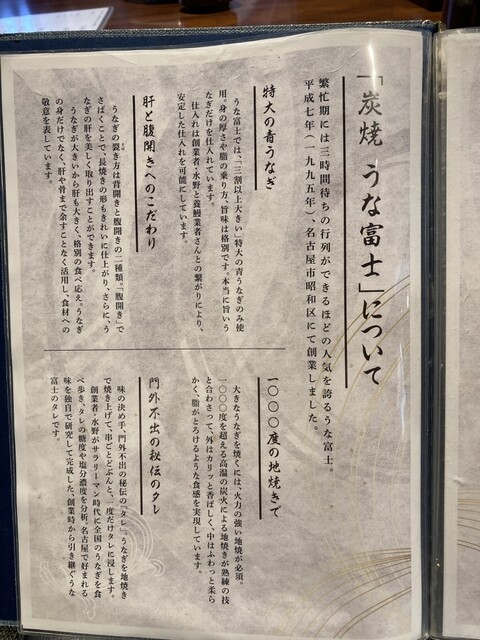 「炭焼 うな富士」について
繁忙期には三時間待ちの行列ができるほどの人気を誇るうな富士。
平成七年(一九九五年)、名古屋市昭和区にて創業しました。
特大の青うなぎ
うな富士では、「三割以上大きい」特大の青うなぎのみ使
用。身の厚さや脂の乗り方、旨味は格別です。本当に旨いう
なぎだけを仕入れています。
仕入れは創業者・水野と養鰻業者さんとの繋がりにより、
安定した仕入れを可能にしています。
肝と腹開きへのこだわり
うなぎの裂き方は背開きと腹開きの二種類。「腹開き」で
さばくことで、長焼きの形もきれいに仕上がり、さらに、う
なぎの肝を美しく取り出すことができます。
うなぎが大きいから肝も大きく、格別の食べ応え。うなぎ
の身だけでなく、肝や骨まで余すことなく活用し、食材への
敬意を表しています。
一〇〇〇度の地焼きで
大きなうなぎを焼くには、火力の強い地焼が必須。
一〇〇〇度を超える高温の炭火による地焼きが熟練の技
と合わさって、外はカリッと香ばしく、中はふわっと柔ら
かく、脂がとろけるような食感を実現しています。
門外不出の秘伝のタレ
味の決め手、門外不出の秘伝の『タレ』。うなぎを地焼き
で焼き上げて、串ごとどぶんと、二度だけタレに浸します。
創業者・水野がサラリーマン時代に全国のうなぎを食
べ歩き、タレの糖度や塩分濃度を分析。名古屋で好まれる
味を独自で研究して完成した、創業時から引き継ぐうな
富士のタレです。